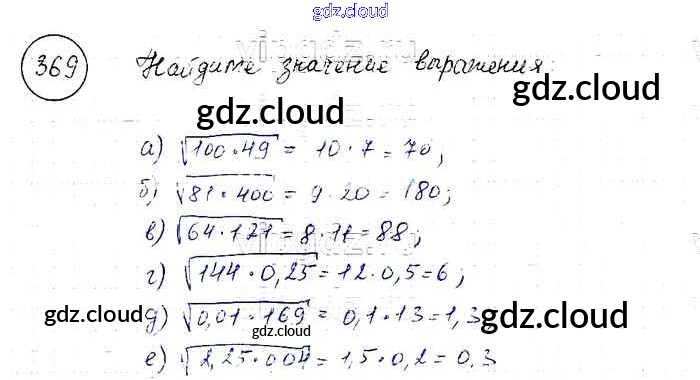 gdz.cloud
369 Найдите значение выражения
gdz.cloud
gdz.cloud
а) √100·49 = 10·7 = 70;
б) √81·400 = 9·20 = 180;
в) √64·121 = 8·11 = 88;
г) √144·0,25 = 12·0,5 = 6;
gdz.cloud д) √0,01·169 = 0,1·13 = 1,3 gdz.cloud
gdz.cloud
е) √2,25·0,04 = 1,5·0,2 = 0,3